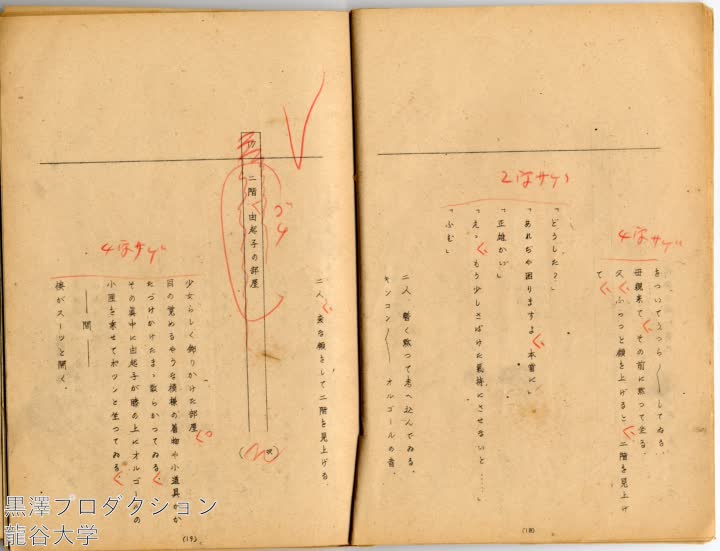 4字サゲ
をついてうつら〳〵してゐる。
母親来て、その前に黙つて坐る。
父、ふつつと顔を上げると、二階を見上げ
て
2字サゲ
「どうした?」
「あれぢや困りますよ、本当に」
「正雄かい」
「え、もう少しさばけた気持にさせないと……」
「ふむ」
二人、暫く黙つて考へ込んでゐる。
キンコン〳〵 オルゴールの音。
(18)
二人、変な顔をして二階を見上げる。
ゴチ
二階 由起子の部屋
4字サゲ
少女らしく飾りかけた部屋。
目の覚めるやうな模様の着物や小道具がか
たづけかけたまゝ散らかつてゐる。
その真中に由起子が膝の上にオルゴールの
小匣を乗せてポツンと坐つてゐる。
――間――
襖がスーツと開く。
(19)
黒澤プロダクション
龍谷大学